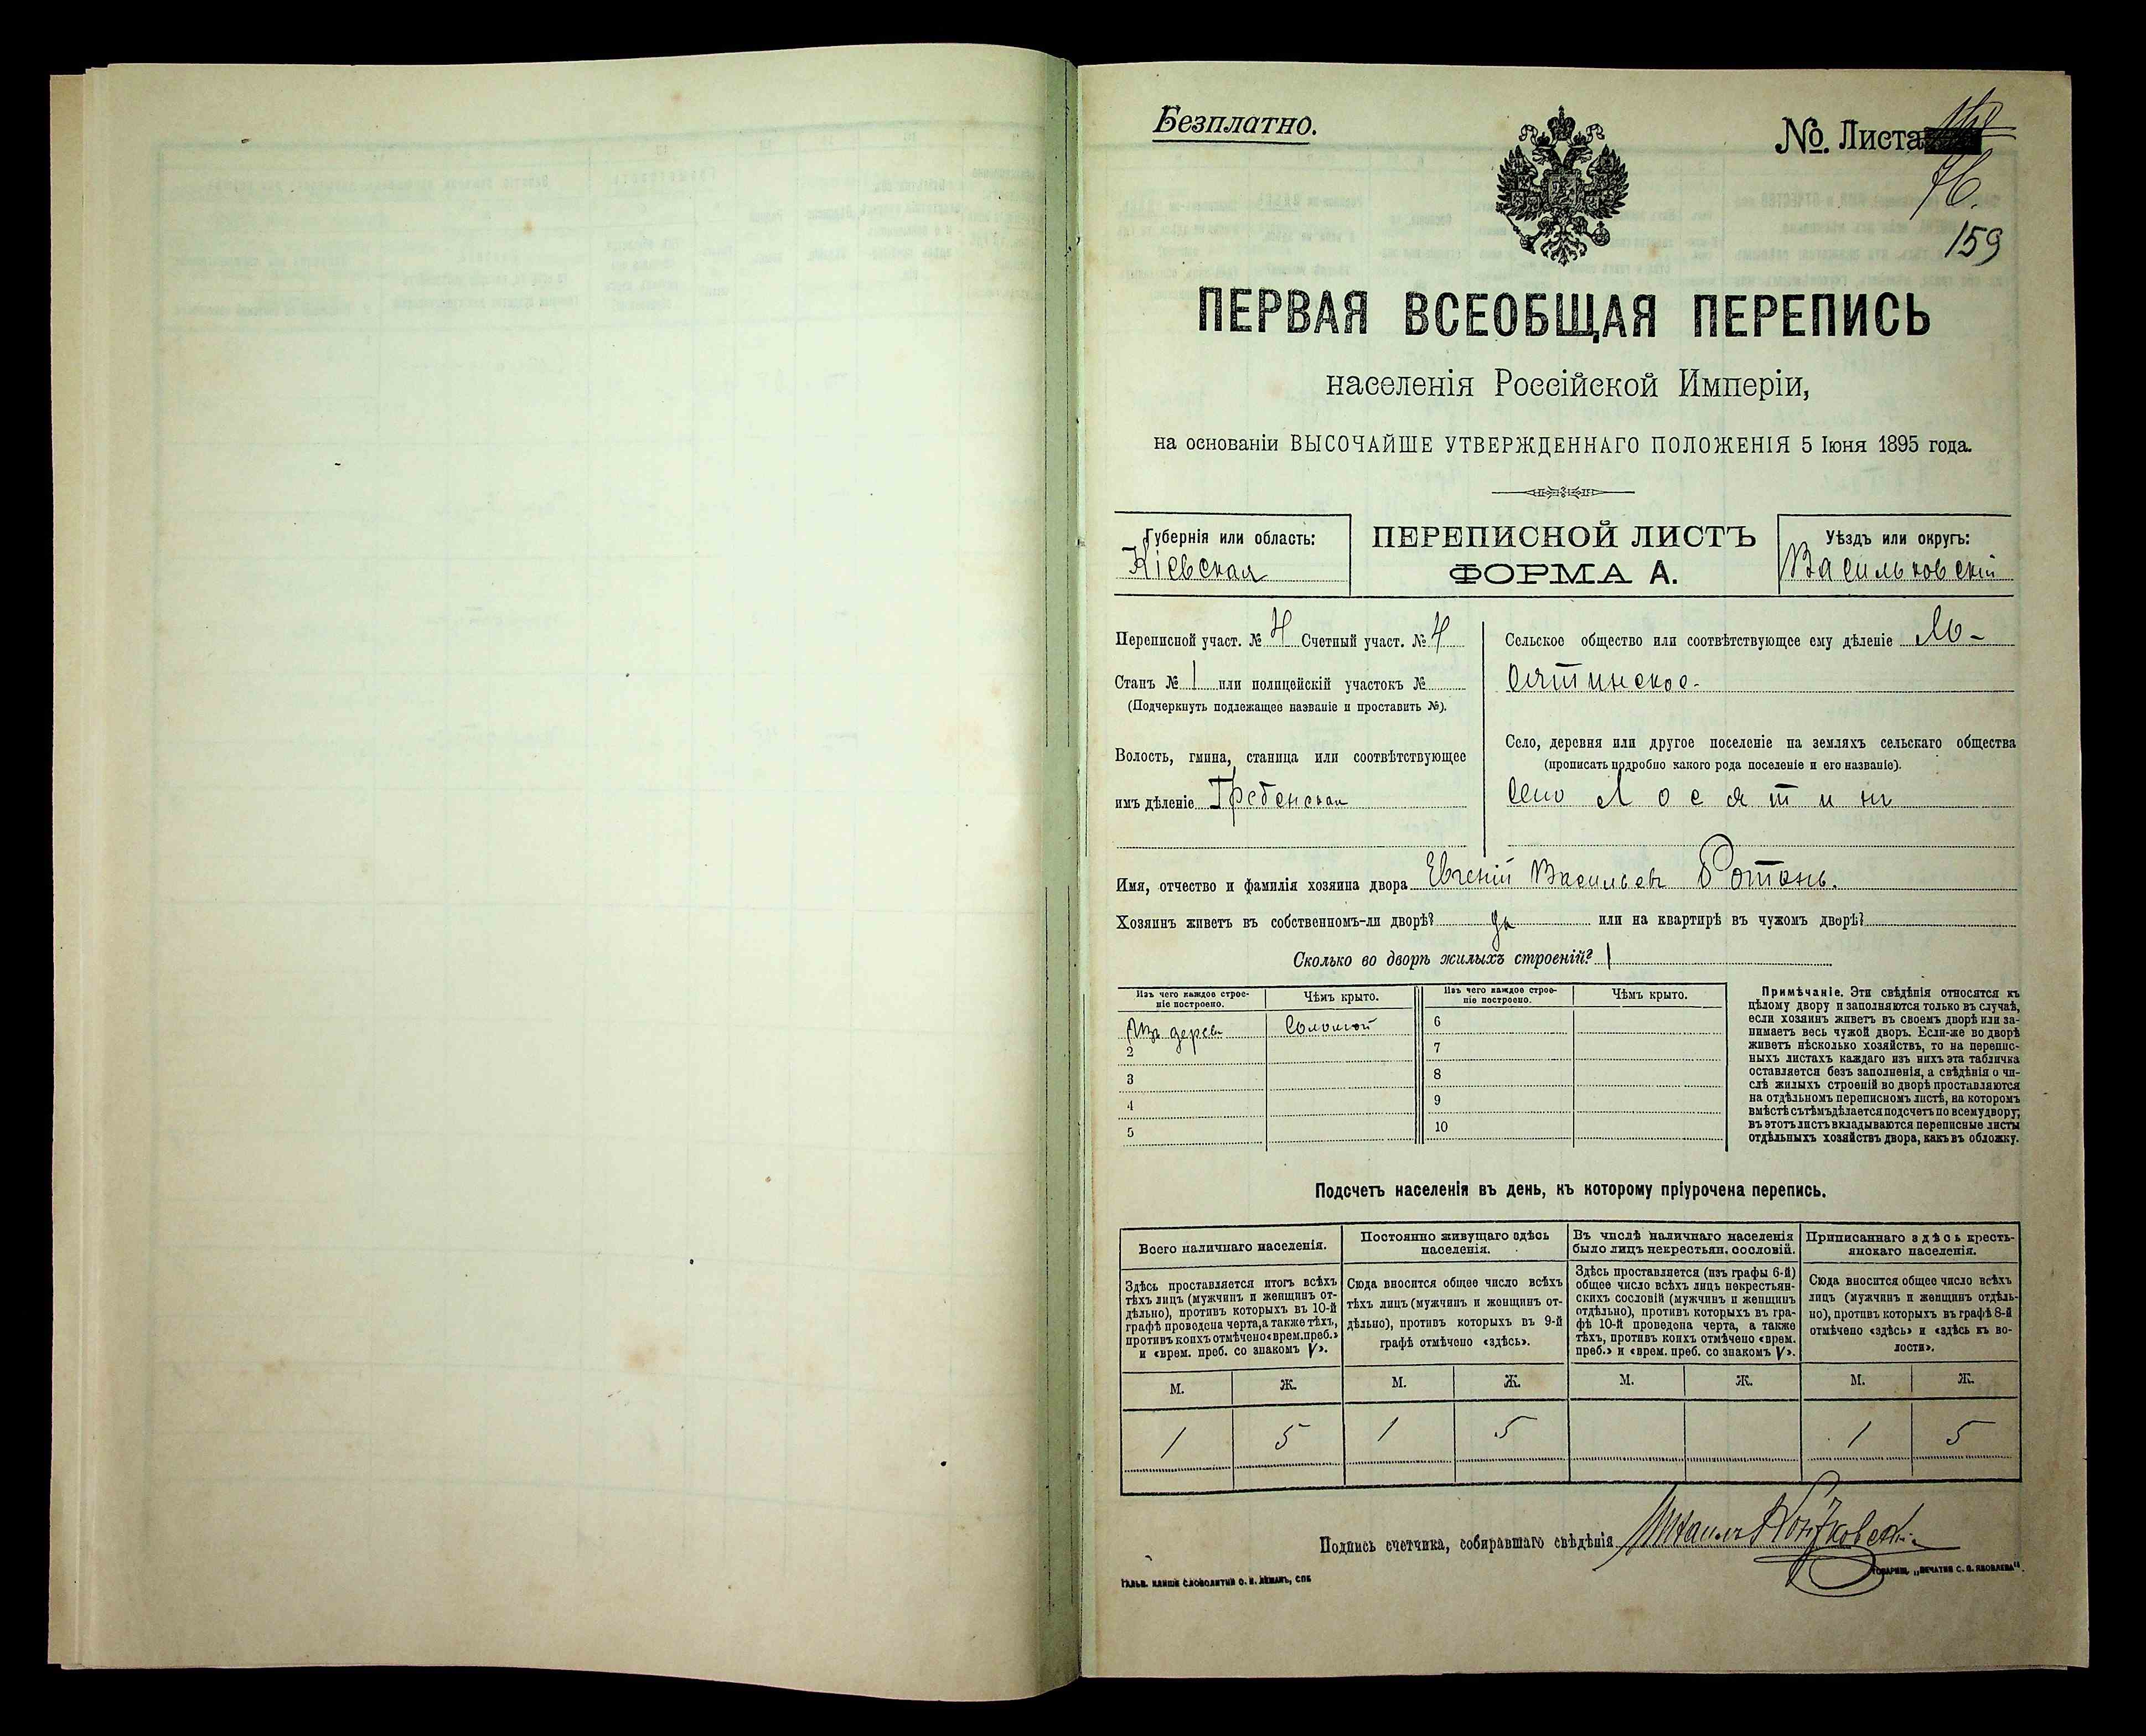 Безплатно.
№. Листа
76.
159
ПЕРВАЯ ВСЕОБЩАЯ ПЕРЕПИСЬ
населенія Россійской Имперіи,
на основаніи ВЫСОЧАЙШЕ УТВЕРЖДЕННАГО ПОЛОЖЕНІЯ 5 Іюня 1895 года.
Губернія или область:
Кіевская
ПЕРЕПИСНОЙ ЛИСТЪ
ФОРМА А.
Уѣздъ или округъ:
Васильковскій
Переписной участ. № 4 Счетный участ. № 4
Станъ № 1 или полицейскій участокъ №
(Подчеркнуть подлежащее названіе и проставить №).
Волость, гмина, станица или соотвѣтствующее
имъ дѣленіе Гребенская
Сельское общество или соотвѣтствующее ему дѣленіе Ло-
сятинское.
Село, деревня или другое поселеніе на земляхъ сельскаго общества
(прописать подробно какого рода поселеніе и его названіе).
село Лосятинъ
Имя, отчество и фамилія хозяина двора Евгеній Васильевъ Ротань.
Хозяинъ живетъ въ собственномъ-ли дворѣ? да или на квартирѣ въ чужомъ дворѣ?
Сколько во дворѣ жилыхъ строеній? 1
Изъ чего каждое строе-
ніе построено.
Чѣмъ крыто.
Изъ чего каждое строе-
ніе построено.
Чѣмъ крыто.
Изъ дерева Соломой
2
3
4
5
6
7
8
9
10
Примѣчаніе. Эти свѣдѣнія относятся къ
цѣлому двору и заполняются только въ случаѣ,
если хозяинъ живетъ въ своемъ дворѣ или за-
нимаетъ весь чужой дворъ. Если-же во дворѣ
живетъ нѣсколько хозяйствъ, то на перепис-
ныхъ листахъ каждаго изъ нихъ эта табличка
оставляется безъ заполненія, а свѣдѣнія о чи-
слѣ жилыхъ строеній во дворѣ проставляются
на отдѣльномъ переписномъ листѣ, на которомъ
вмѣстѣ съ тѣмъ дѣлается подсчетъ по всему двору;
въ этотъ листъ вкладываются переписные листы
отдѣльныхъ хозяйствъ двора, какъ въ обложку.
Подсчетъ населенія въ день, къ которому пріурочена перепись.
Всего наличнаго населенія.
Здѣсь проставляется итогъ всѣхъ
тѣхъ лицъ (мужчинъ и женщинъ от-
дѣльно), противъ которыхъ въ 10-й
графѣ проведена черта, а также тѣхъ,
противъ коихъ отмѣчено «врем. преб.»
и «врем. преб. со знакомъ V».
Постоянно живущаго здѣсь
населенія.
Сюда вносится общее число всѣхъ
тѣхъ лицъ (мужчинъ и женщинъ от-
дѣльно), противъ которыхъ въ 9-й
графѣ отмѣчено «здѣсь».
Въ числѣ наличнаго населенія
было лицъ некрестьян. сословій.
Здѣсь проставляется (изъ графы 6-й)
общее число всѣхъ лицъ некрестьян-
скихъ сословій (мужчинъ и женщинъ
отдѣльно), противъ которыхъ въ гра-
фѣ 10-й проведена черта, а также
тѣхъ, противъ коихъ отмѣчено «врем.
преб.» и «врем. преб. со знакомъ V».
Приписаннаго здѣсь кресть-
янскаго населенія.
Сюда вносится общее число всѣхъ
лицъ (мужчинъ и женщинъ отдѣль-
но), противъ которыхъ въ графѣ 8-й
отмѣчено «здѣсь» и «здѣсь къ во-
лости».
М. Ж. М. Ж. М. Ж. М. Ж.
1 5 1 5 1 5
Подпись счетчика, собиравшаго свѣдѣнія Михаилъ